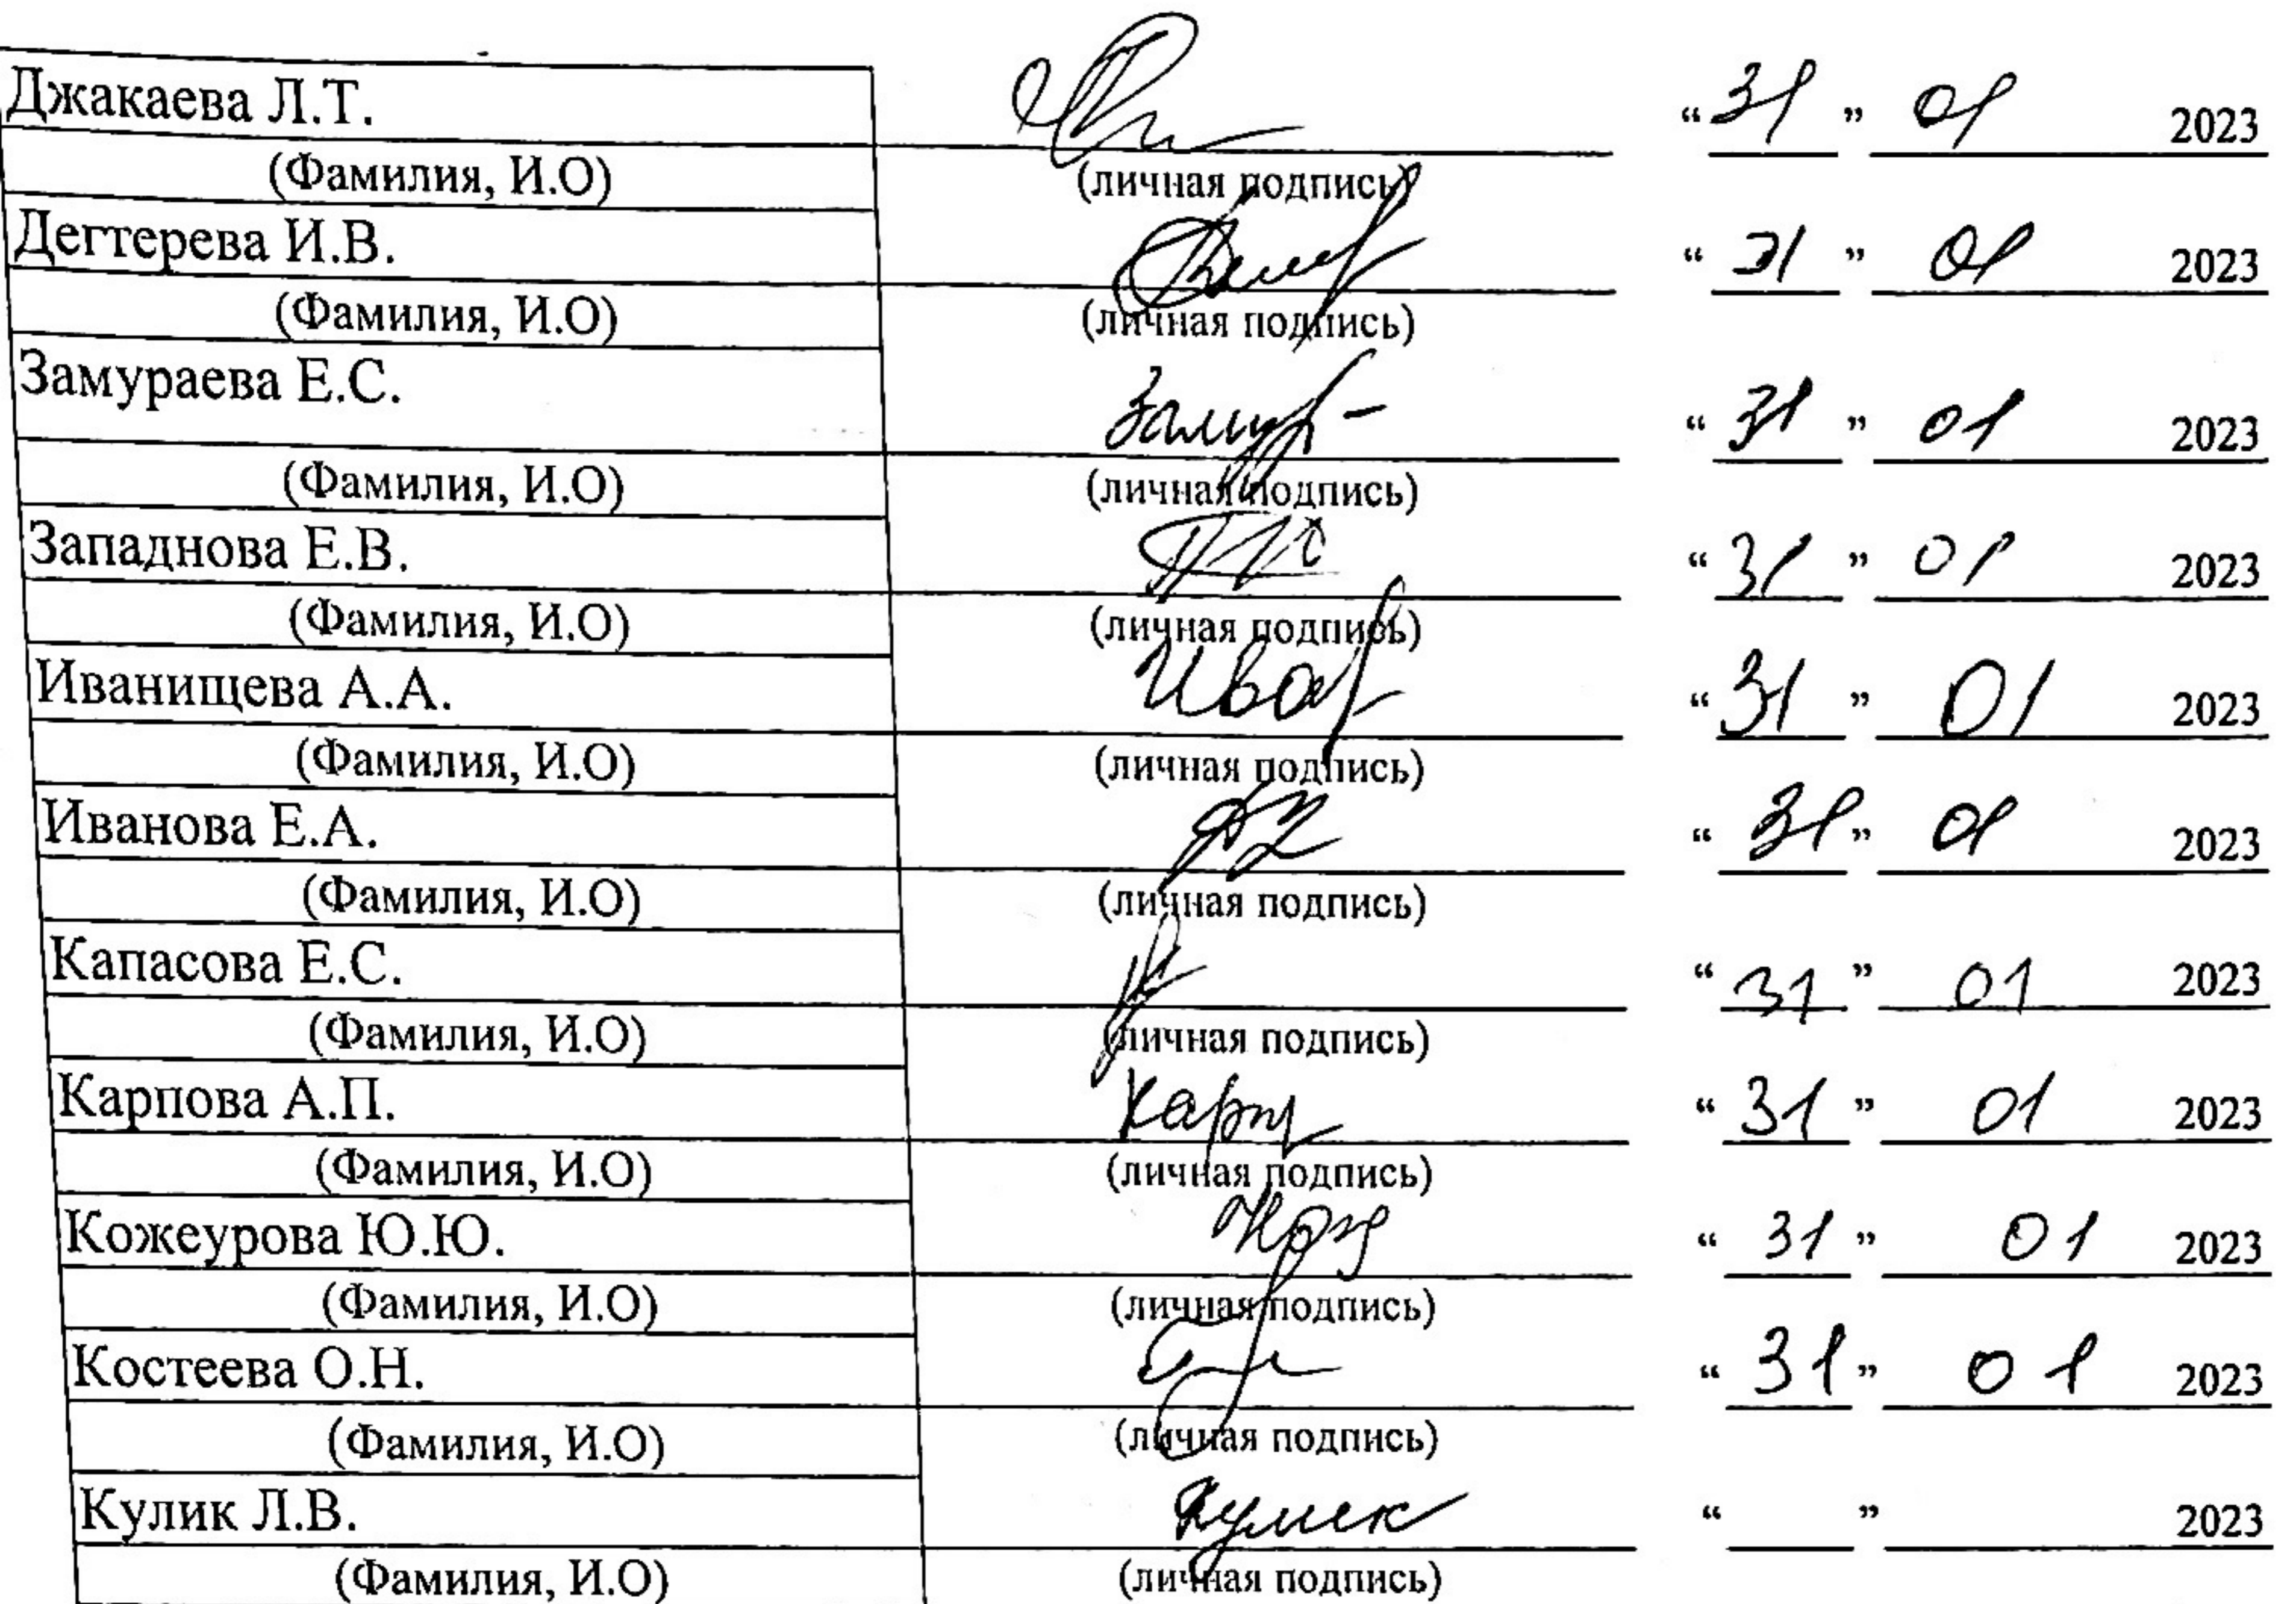 Джакаева Л.Т. “31” 01 2023
(Фамилия, И.О) (личная подпись)
Дегтерева И.В. “31” 01 2023
(Фамилия, И.О) (личная подпись)
Замураева Е.С. Замур “31” 01 2023
(Фамилия, И.О) (личная подпись)
Западнова Е.В. “31” 01 2023
(Фамилия, И.О) (личная подпись)
Иванищева А.А. Ива “31” 01 2023
(Фамилия, И.О) (личная подпись)
Иванова Е.А. “31” 01 2023
(Фамилия, И.О) (личная подпись)
Капасова Е.С. “31” 01 2023
(Фамилия, И.О) (личная подпись)
Карпова А.П. Карп “31” 01 2023
(Фамилия, И.О) (личная подпись)
Кожеурова Ю.Ю. Кож “31” 01 2023
(Фамилия, И.О) (личная подпись)
Костеева О.Н. “31” 01 2023
(Фамилия, И.О) (личная подпись)
Кулик Л.В. Кулик “ ” 2023
(Фамилия, И.О) (личная подпись)